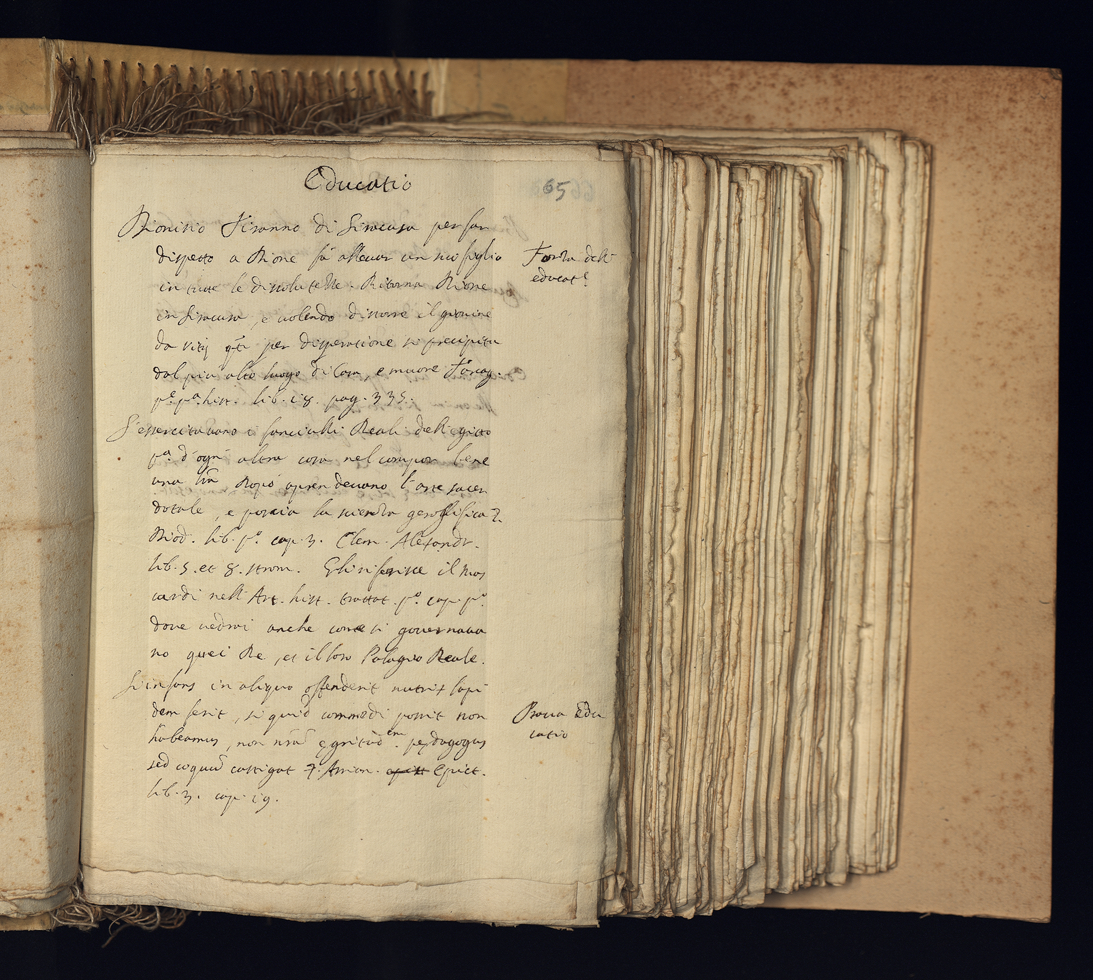 Educatio
65
Dionisio Tiranno di Siracusa per far
dispetto a Dione fà allevar un suo figlio
in tutte le dissolutezze. Ritorna Dione
in Siracusa, e volendo distorre il giovine
da vitij qti per disperatione si precipita
dal più alto luogo di Casa, e muore
lib. 18. pag. 335.
Forza dell
educat.e
S'essercitavano i fanciulli Reali dell'egitto
pa d'ogni altra cosa nel compor bene
una Dopò aprendevano l'arte sacer
dotale, e poscia la scienza geroglifica.
Diod. lib. po. cap. 3. Clem. Alexandr.
lib. 5. et 8. strom. Gli riferisce il Mas
cardi nell'Art. hist. trattat. po. cap. po.
dove vedrai anche come si governava
no quei Re, et il loro Palagio Reale.
Si infans in aliquo offenderit nutrix lapi
dem ferit, si quid commodi possit non
habeamus, non pedagogus
sed coquū castigat Arrian. Epict.
lib. 3. cap. 19.
Prava Edu
catio